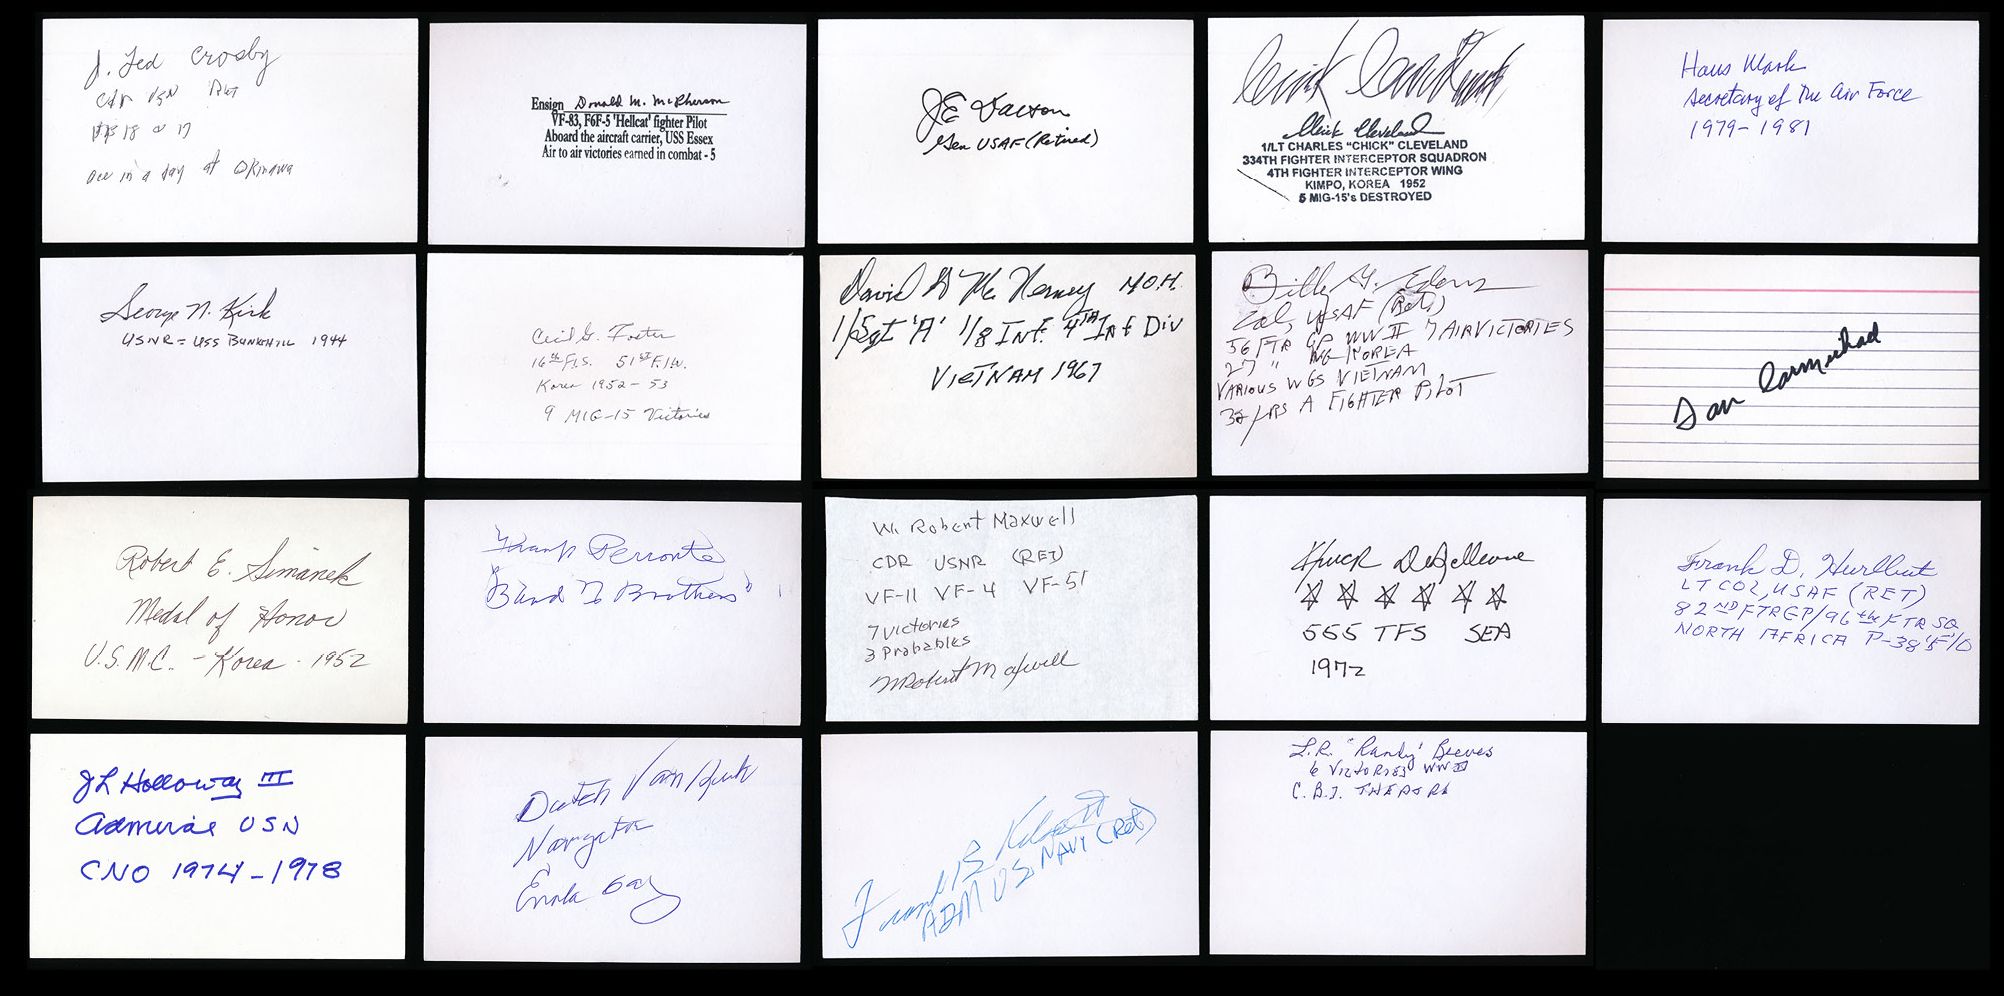 J. Ted Crosby
CDR USN Ret
VF 18 & 17
ace in a day at Okinawa
Ensign Donald M. McPherson
VF-83, F6F-5 'Hellcat' fighter Pilot
Aboard the aircraft carrier, USS Essex
Air to air victories earned in combat - 5
JE
Gen USAF (Retired)
Chick Cleveland
Chick Cleveland
1/LT CHARLES "CHICK" CLEVELAND
334TH FIGHTER INTERCEPTOR SQUADRON
4TH FIGHTER INTERCEPTOR WING
KIMPO, KOREA 1952
5 MIG-15's DESTROYED
Hans Mark
Secretary of the Air Force
1979-1981
George N. Kirk
USNR = USS BUNKHILL 1944
Cecil G. Foster
16th F.I.S. 51ST F.I.W.
Korea 1952-53
9 MIG-15 Victories
David H Mc Nerney M.O.H.
1/Sgt 'A' 1/8 INF. 4TH INF DIV
VIETNAM 1967
Billy G. Edens
Col, USAF (Ret)
56 FTR GP WW II 7 AIR VICTORIES
27 " WG KOREA
VARIOUS WGS VIETNAM
YRS A FIGHTER PILOT
Dan Carmichael
Robert E. Simanek
Medal of Honor
U.S.M.C. - Korea - 1952
Frank Perronte
"Band Brothers"
W. Robert Maxwell
CDR USNR (RET)
VF-11 VF-4 VF-51
7 Victories
3 Probables
W Robert Maxwell
Chuck DeBellevue
☆ ☆ ☆ ☆ ☆ ☆
555 TFS SEA
1972
Frank D. Hurlbut
LT COL, USAF (RET)
82ND FTR GP/96th FTR SQ
NORTH AFRICA P-38
JL Holloway III
Admiral USN
CNO 1974-1978
Dutch Van Kirk
Navigator
Enola Gay
Frank B Kelso II
ADM U.S. NAVY (Ret)
L.R. "Randy" Reeves
6 VICTORIES WW II
C.B.I. THEATER